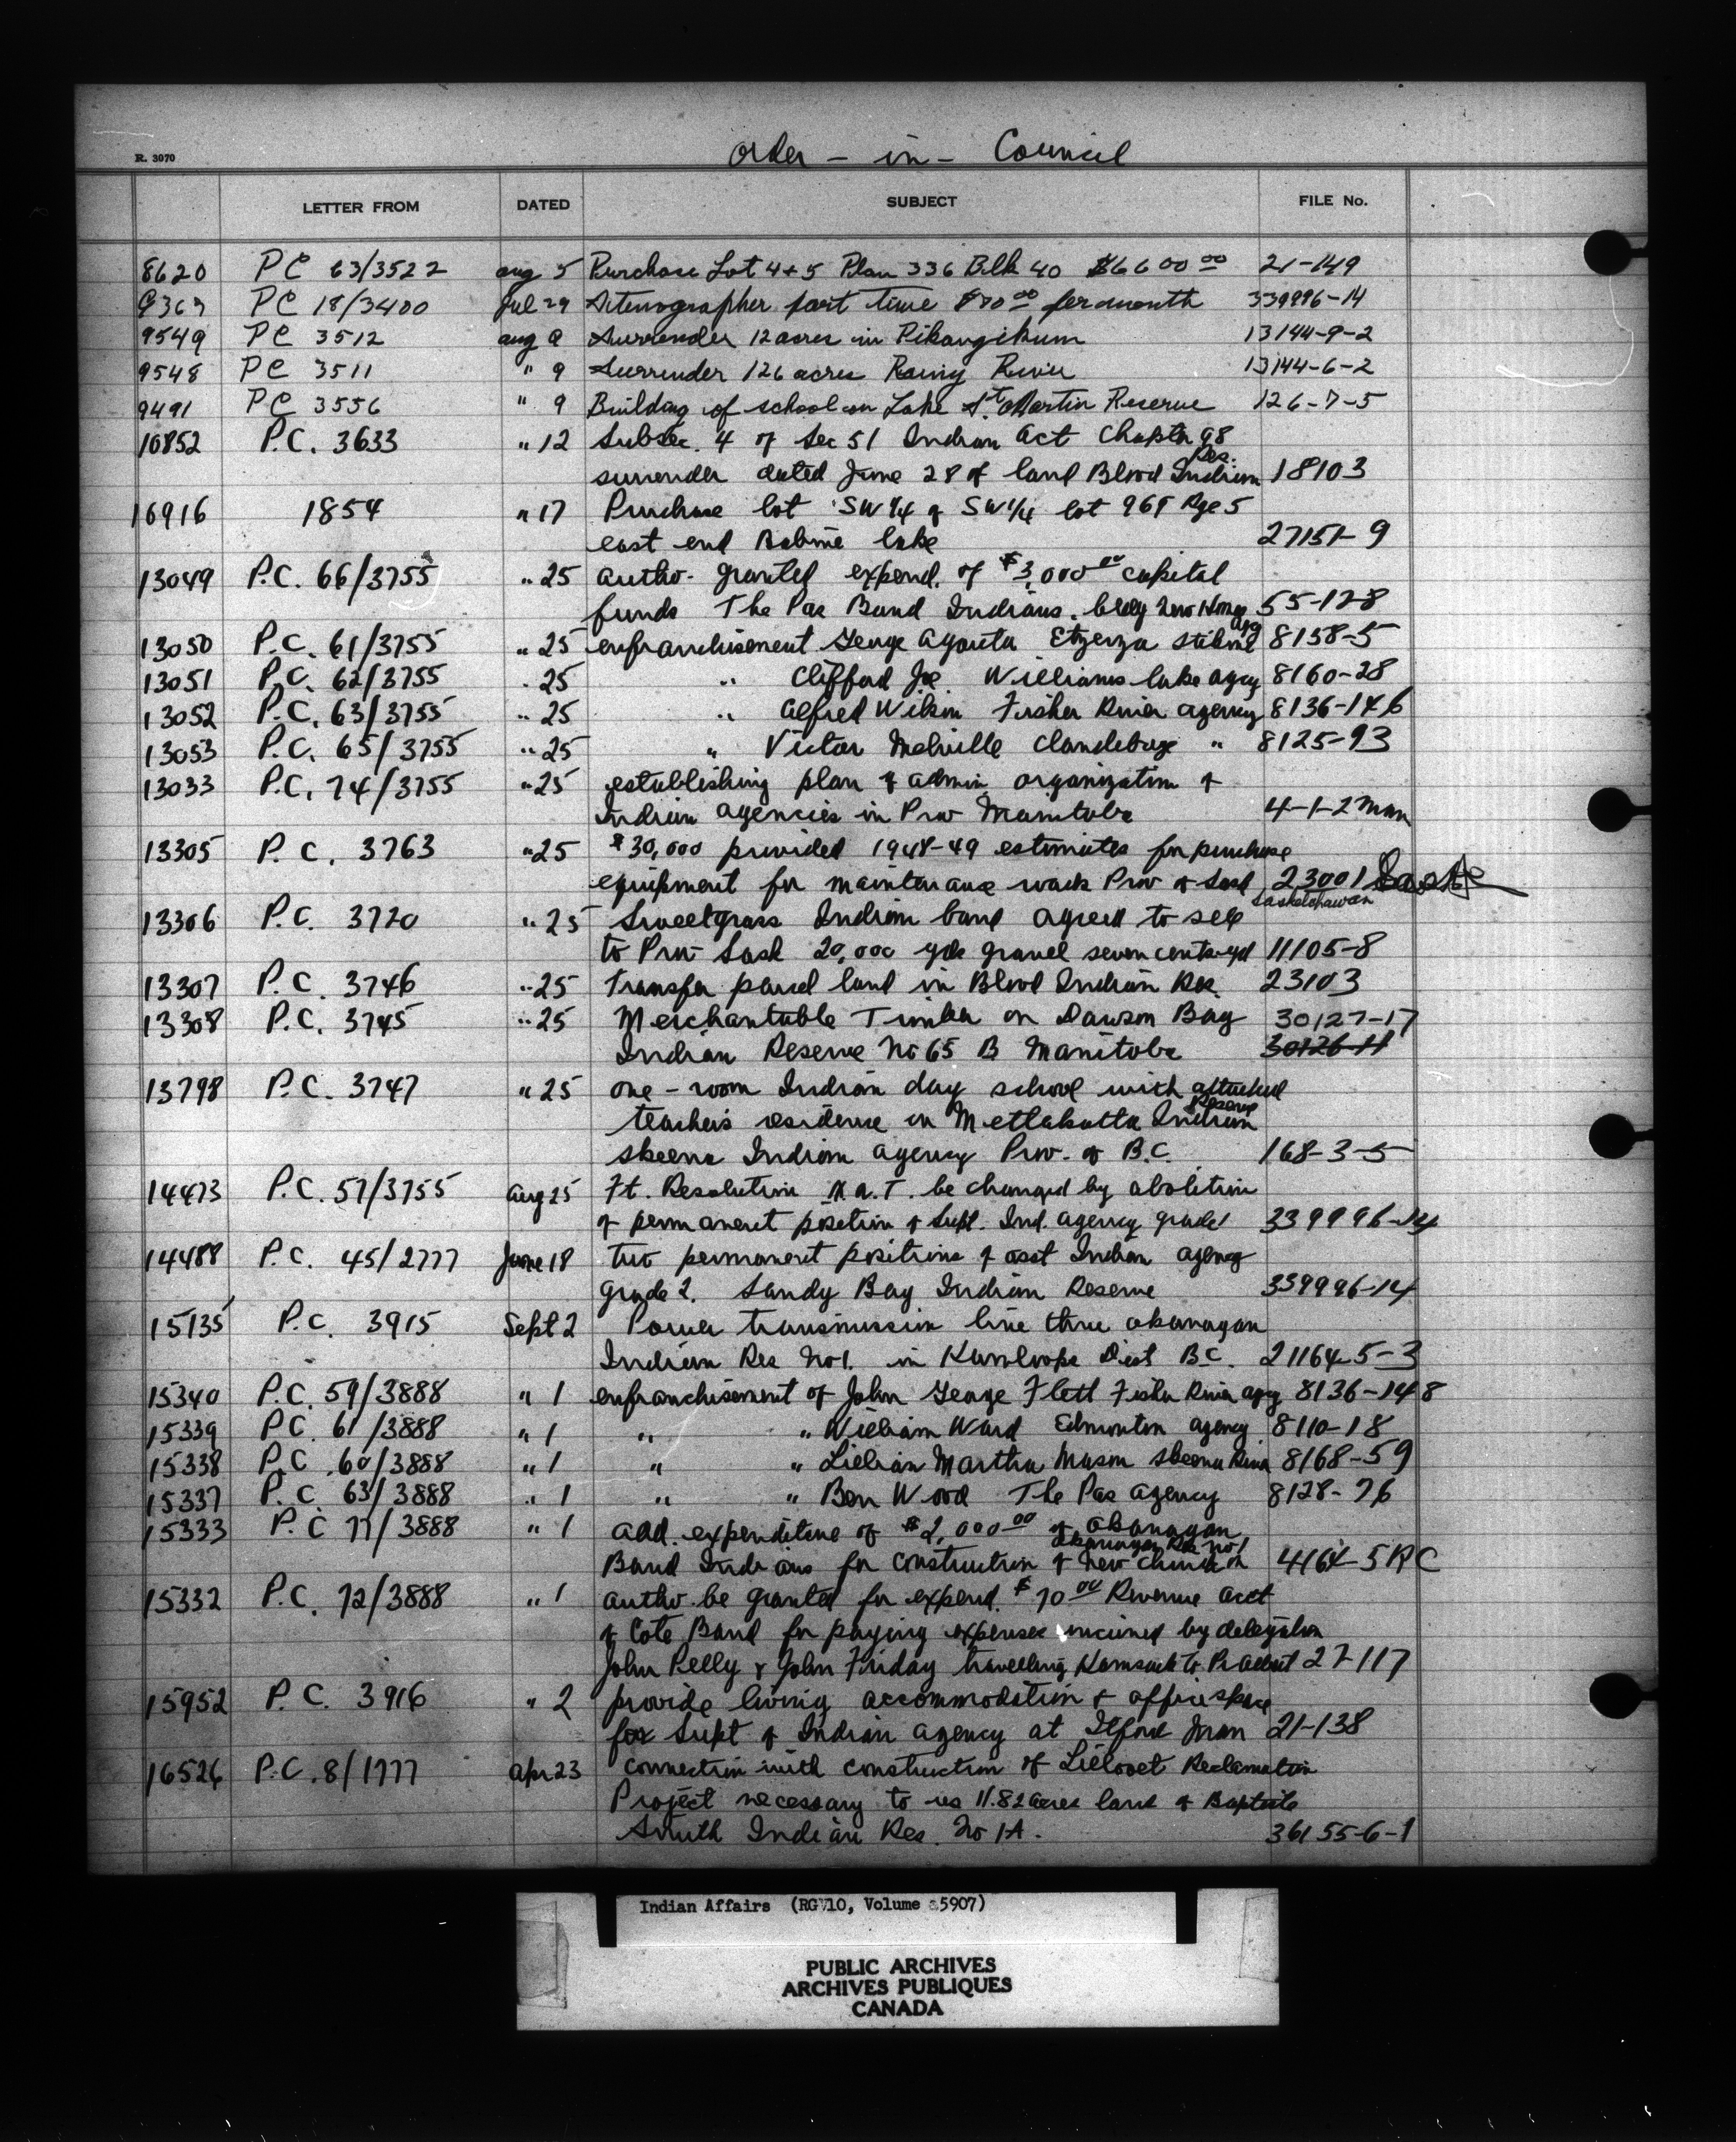 R. 3070
Order - in - Council
LETTER FROM DATED SUBJECT FILE No.
8620 PC 63/3522 aug 5 Purchase Lot 4+5 Plan 336 Blk 40 $6600 00 21-149
PC 18/3400 Jul 29 Stenographer part time per month 339996-14
9549 PC 3512 aug 9 Surrender 12 acres in Pikangikum 13144-9-2
9548 PC 3511 " 9 Surrender 126 acres Rainy River 13144-6-2
9491 PC 3556 " 9 Building of school on Lake St. Martin Reserve 126-7-5
10852 P.C. 3633 " 12 Subsec. 4 of Sec 51 Indian Act Chapter 98
Res.
surrender dated June 28 of land Blood Indian 18103
16916 1854 " 17 Purchase lot SW 1/4 of SW 1/4 lot 969 Rge 5
east end Babine lake 27151-9
13049 P.C. 66/3755 " 25 autho- granted expend. of $3,000 00 capital
funds The Pas Band Indians. 55-12-8
13050 P.C. 61/3755 " 25 enfranchisement George Etzerza 8158-5
13051 P.C. 62/3755 " 25 " Clifford Joe Williams lake agcy 8160-28
13052 P.C. 63/3755 " 25 " Alfred Wilson Fisher River agency 8136-146
13053 P.C. 65/3755 " 25 " Victor Melville Clandeboye " 8125-93
13033 P.C. 74/3755 " 25 establishing plan of admin organization of
Indian agencies in Prov Manitoba 4-1-2 Man
13305 P.C. 3763 " 25 $30,000 provided 1948-49 estimates for purchase
equipment for maintenance work Prov of Sask 23001
Saskatchewan
13306 P.C. 3720 " 25 Sweetgrass Indian band agreed to sell
to Prov Sask 20,000 yds gravel seven cents yd 11105-8
13307 P.C. 3746 " 25 Transfer parcel land in Blood Indian Res. 23103
13308 P.C. 3745 " 25 Merchantable Timber on Dawson Bay 30127-17
Indian Reserve No 65 B Manitoba 30126-11
13798 P.C. 3747 " 25 one-room Indian day school with attached
Reserve
teacher's residence in Metlakatla Indian
Skeena Indian agency Prov. of B.C. 168-3-5
14473 P.C. 57/3755 Aug 25 Ft. Resolution N.W.T. be changed by abolition
of permanent position of Supt. Ind. agency grade 1 339996-14
14488 P.C. 45/2777 June 18 two permanent positions of asst Indian agency
grade 2. Sandy Bay Indian Reserve 339996-14
15135 P.C. 3915 Sept 2 Power transmission line thru okanagan
Indian Res No 1. in Kamloops Dist B.C. 21164-5-3
15340 P.C. 59/3888 " 1 enfranchisement of John George Flett Fisher River agcy 8136-148
15339 P.C. 61/3888 " 1 " " William Ward Edmonton agency 8110-18
15338 P.C. 60/3888 " 1 " " Lillian Martha Mason Skeena River 8168-59
15337 P.C. 63/3888 " 1 " " Ben Wood The Pas agency 8128-76
15333 P.C. 77/3888 " 1 add. expenditure of $2,000 00 of okanagan
okanagan Res no 1
Band Indians for construction of new church on 4164-5 RC
15332 P.C. 72/3888 " 1 autho. be granted for expend. $70 00 Revenue acct
of Cote Band for paying expenses incurred by delegation
John Pelly & John Friday travelling Kamsack to Pr Albert 27-117
15952 P.C. 3916 " 2 provide living accommodation & office space
for Supt of Indian agency at Ilford Man 21-138
16526 P.C. 8/1777 Apr 23 connection with construction of Lillooet Reclamation
Project necessary to us 11.82 acres land of Baptiste
Smith Indian Res. No 1A. 36155-6-1
Indian Affairs (RG 10, Volume 5907)
PUBLIC ARCHIVES
ARCHIVES PUBLIQUES
CANADA